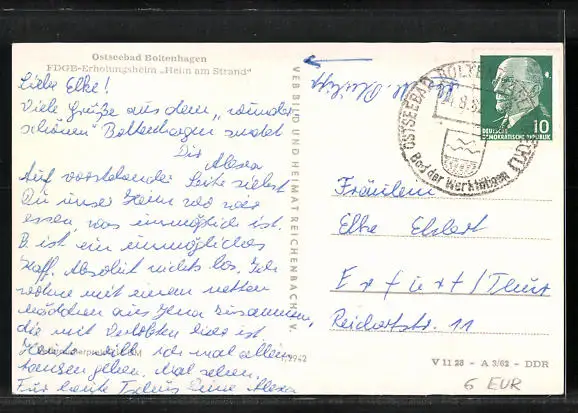 Ostseebad Boltenhagen
FDGB-Erholungsheim „Heim am Strand"
Liebe Elke!
Viele Grüße aus dem „wunder-
schönen" Boltenhagen sendet
Dir Alexa
Auf vorstehender Seite siehst
Du unser Heim wo wir
essen, was unmöglich ist.
B. ist ein unmögliches
Kaff. Absolut nichts los. Ich
wohne mit einem netten
mädchen aus Jena zusammen,
die mit Verlobten hier ist
Heute will ich mal allein
tanzen gehen. Mal sehen.
Für heute Tschüs Deine Alexa
VEB BILD UND HEIMAT REICHENBACH I. V.
OSTSEEBAD BOLTENHAGEN
Bad der Werktätigen
DEUTSCHE
DEMOKRATISCHE REPUBLIK
10
Fräulein
Elke
Erfurt/Thür
Reichartstr. 11
V 11 28 - A 3/62 - DDR
6 EUR